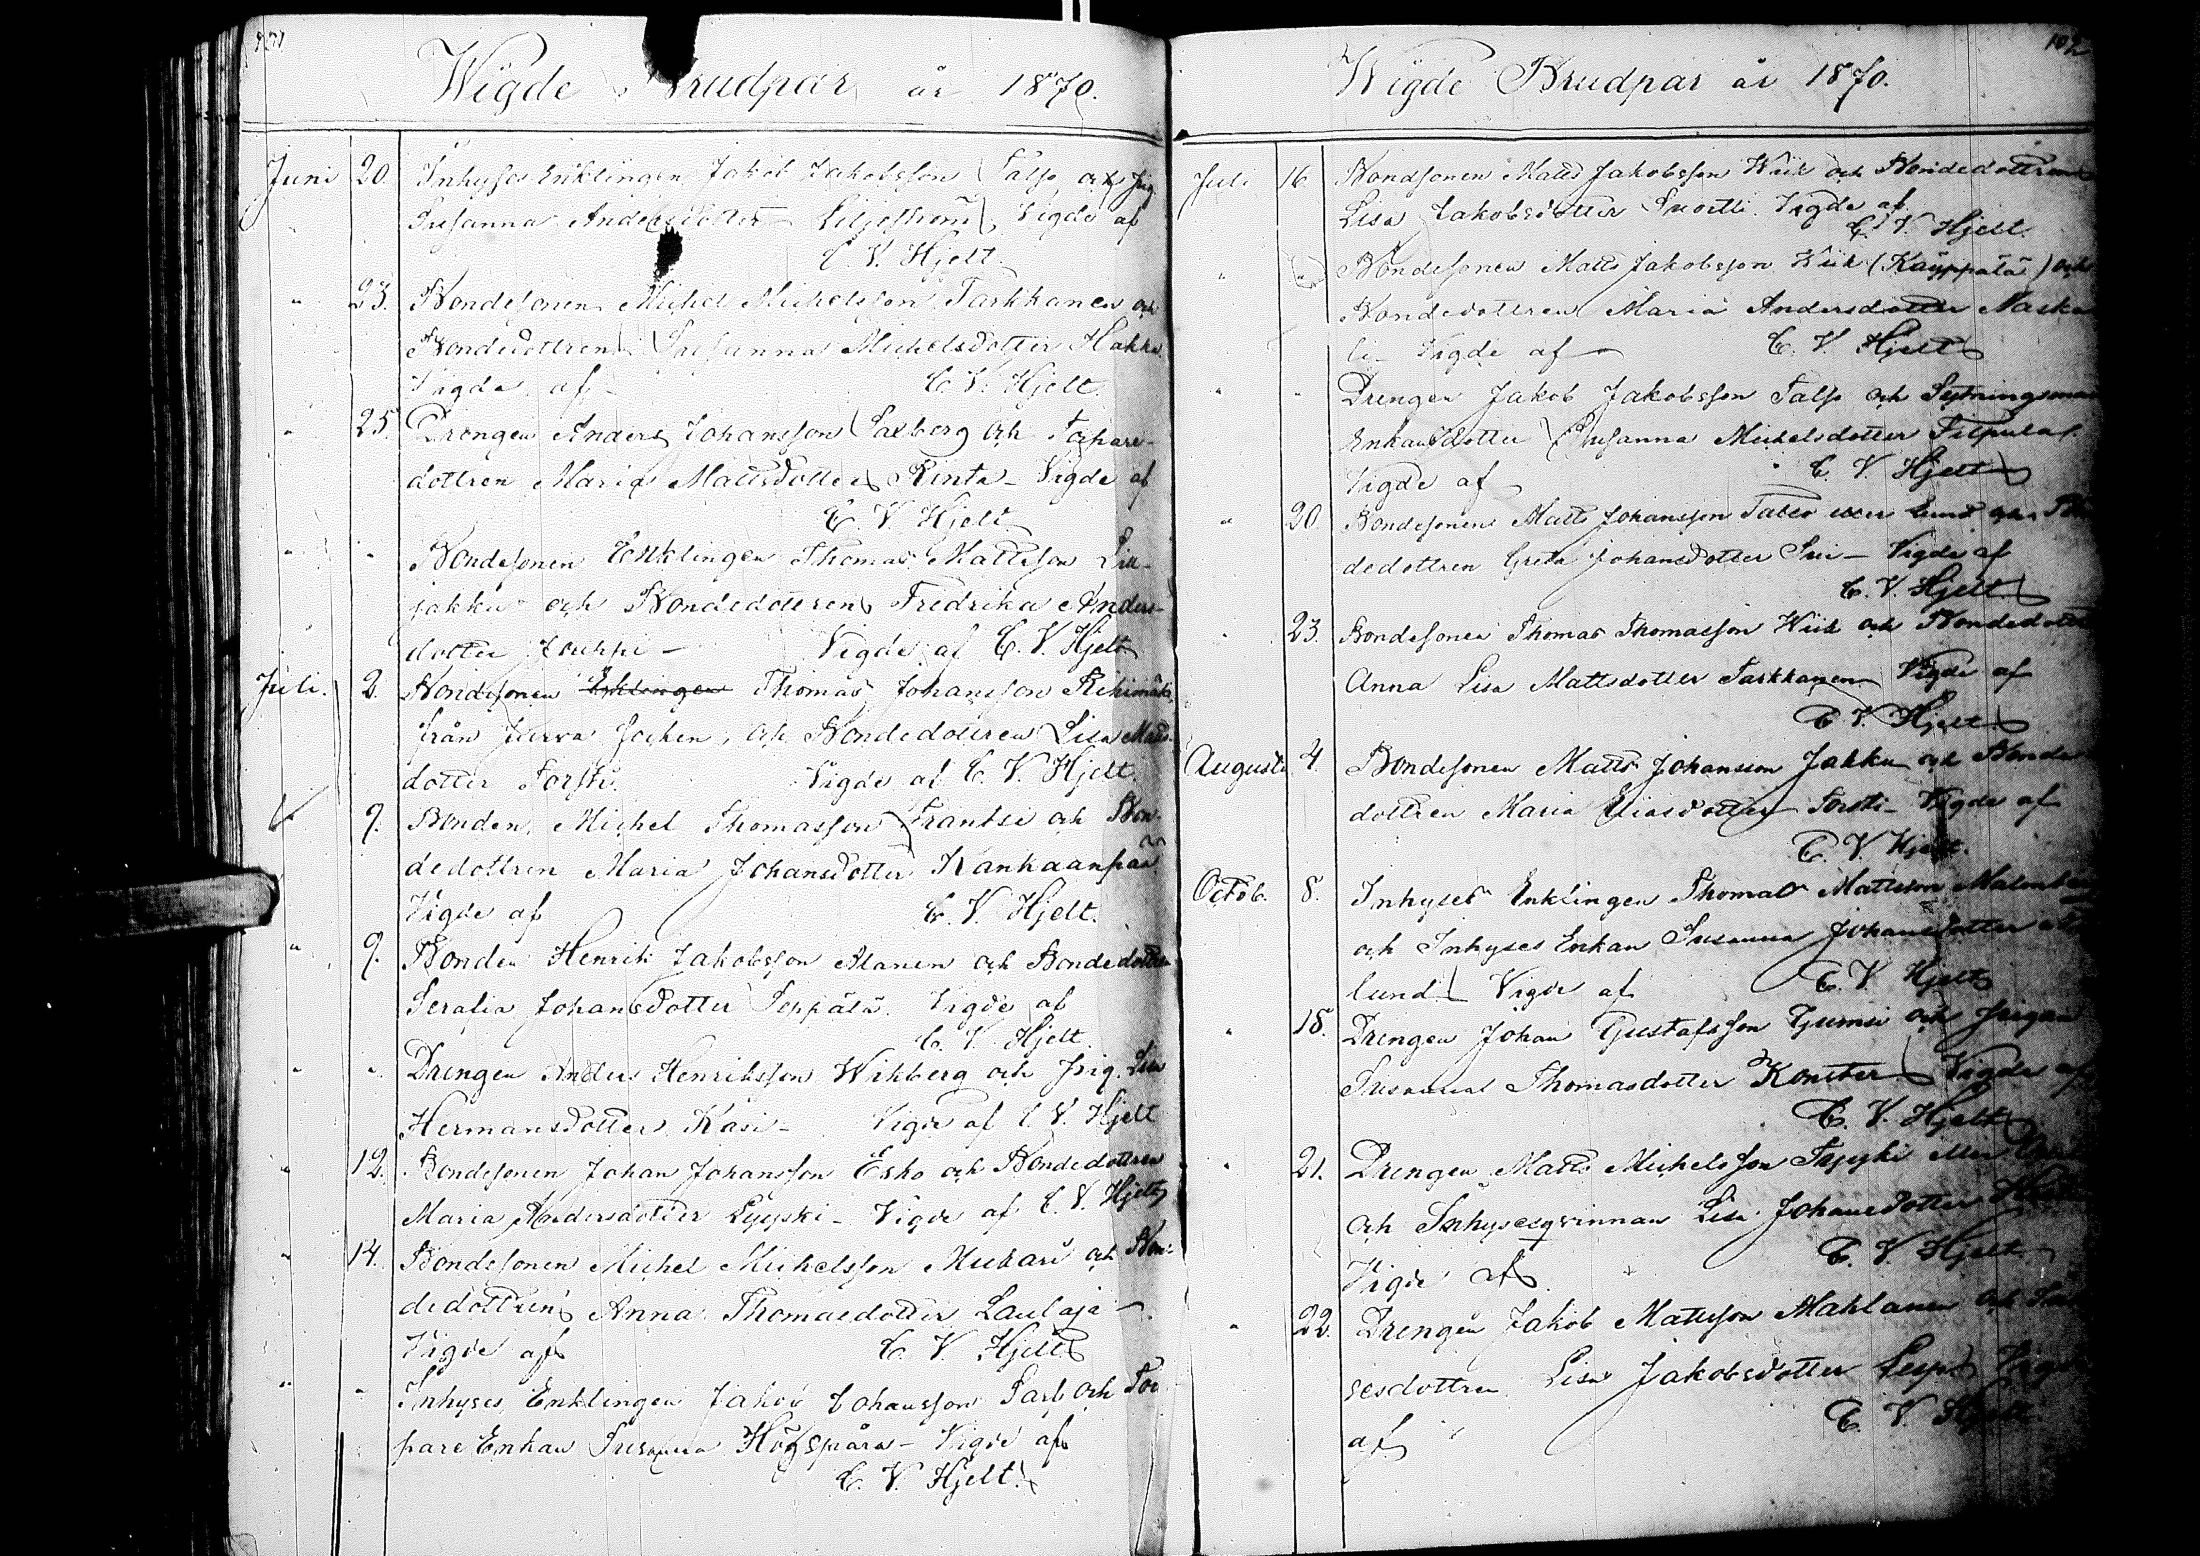 Wigde Brudpar år 1870.
Juni 20. Inhyses Enklingen Jakob Jakobsson Salo och Pig.
Susanna Andersdotter Liljestrom Vigde af
C. V. Hjelt.
" 23. Bondesonen Michel Michelsson Tarkkanen och
Bondedottren Susanna Michelsdotter Hakko
Vigde af C. V. Hjelt.
" 25. Drengen Anders Johansson Saxberg och Torpare-
dottren Maria Mattsdotter Rinta - Vigde af
C. V. Hjelt
" " Bondesonen Enklingen Thomas Mattsson
jakku och Bondedottren Fredrika Anders-
dotter Jouppi - Vigde af C. V. Hjelt
Juli. 2. Bondesonen Enklingen Thomas Johansson Rihimäki
från Jurva Socken, och Bondedottren Lisa Matts-
dotter Forsti. Vigde af C. V. Hjelt.
9. Bonden Michel Thomasson Frantsi och Bon-
dedottren Maria Johansdotter Kankaanpää
Vigde af C. V. Hjelt.
" 9. Bonden Henrik Jakobsson Alanen och Bondedottren
Serafia Johansdotter Seppälä. Vigde af
C. V. Hjelt.
" " Drengen Anders Henriksson Wikberg och Pig. Lisa
Hermansdotter Kasi - Vigde af C. V. Hjelt
" 12. Bondesonen Johan Johansson Esko och Bondedottren
Maria Andersdotter Lyyski - Vigde af C. V. Hjelt
" 14. Bondesonen Michel Michelsson Mukari och Bon-
dedottren Anna Thomasdotter Laulaja -
Vigde af C. V. Hjelt
" " Inhyses Enklingen Jakob Johansson Sarf och Tor
pare Enkan Susanna Högspåra - Vigde af
C. V. Hjelt.
102
Wigde Brudpar år 1870.
Juli 16 Bondsonen Matts Jakobsson Wiik och Bondedottren
Lisa Jakobsdotter Luortti. Vigde af
C. V. Hjelt.
" " Bondesonen Matts Jakobsson Wiik (Käyppälä) och
Bondedottren Maria Andersdotter Naska
li - Vigde af C. V. Hjelt
" " Drengen Jakob Jakobsson Salo och Sytningsman
Enkans dotter Susanna Michelsdotter Filpula
Vigde af C. V. Hjelt
" 20. Bondesonen Matts Johansson
dedottren Greta Johansdotter Sui - Vigde af
C. V. Hjelt
" 23. Bondesonen Thomas Thomasson Wiik och Bondedotter
Anna Lisa Mattsdotter Tarkkanen Vigde af
C. V. Hjelt.
Augusti 4. Bondesonen Matts Johansson Jakku och Bonde
dottren Maria Eliasdotter Forsti - Vigde af
C. V. Hjelt.
Octob. 8. Inhyses Enklingen Thomas Mattsson
och Inhyses Enkan Susanna Johansdotter
lund Vigde af C. V. Hjelt
" 15. Drengen Johan Gustafsson Gumsi och Pigan
Susanna Thomasdotter Konster Vigde af
C. V. Hjelt
" 21. Drengen Matts Michelsson eller
och Inhysesqvinnan Lisa Johansdotter
Vigde af C. V. Hjelt
" 22. Drengen Jakob Mattsson Mahlanen och Inhy
sesdottren Lisa Jakobsdotter Vigde
af C. V. Hjelt